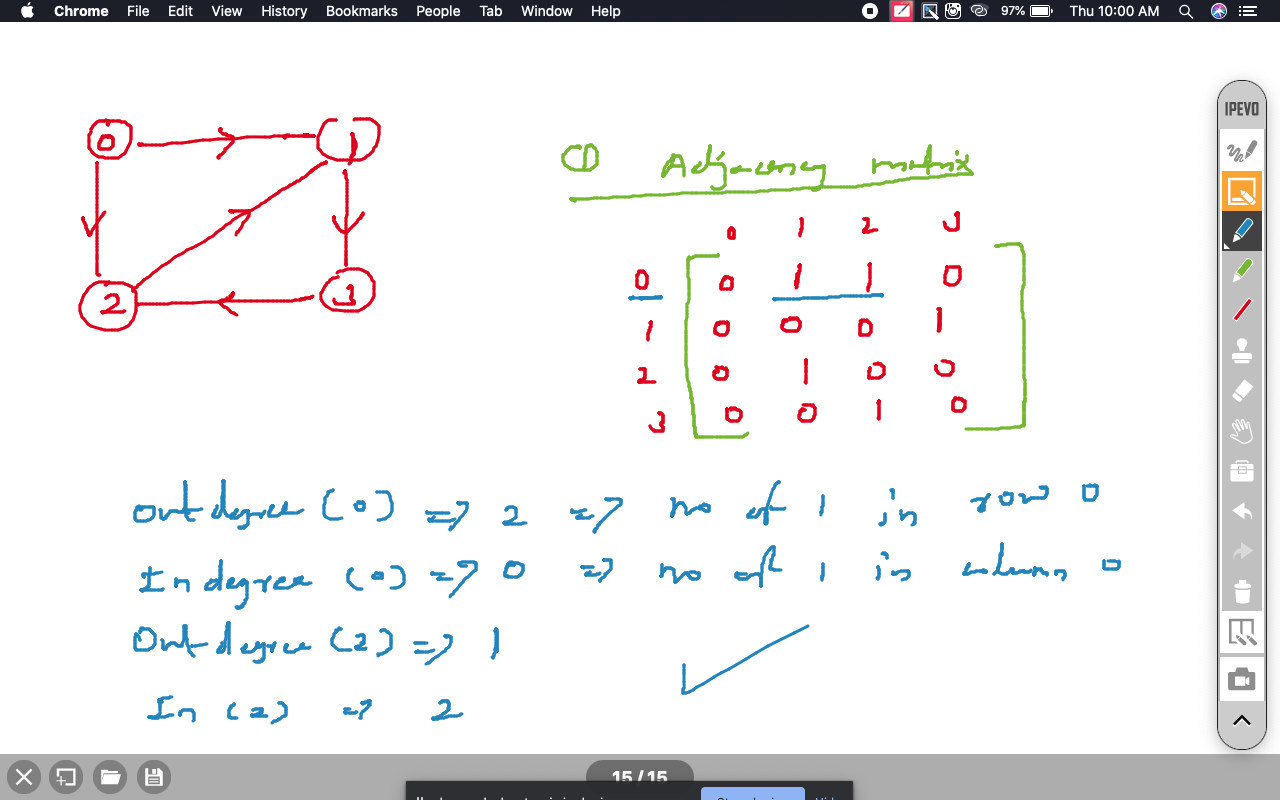 Chrome File Edit View History Bookmarks People Tab Window Help 97% Thu 10:00 AM
IPEVO
0 1
2 3
① Adjacency matrix
0 1 2 3
0 0 1 1 0
1 0 0 0 1
2 0 1 0 0
3 0 0 1 0
outdegree (0) => 2 => no of 1 in row 0
Indegree (0) => 0 => no of 1 in column 0
Outdegree (2) => 1
In (2) => 2
15 / 15